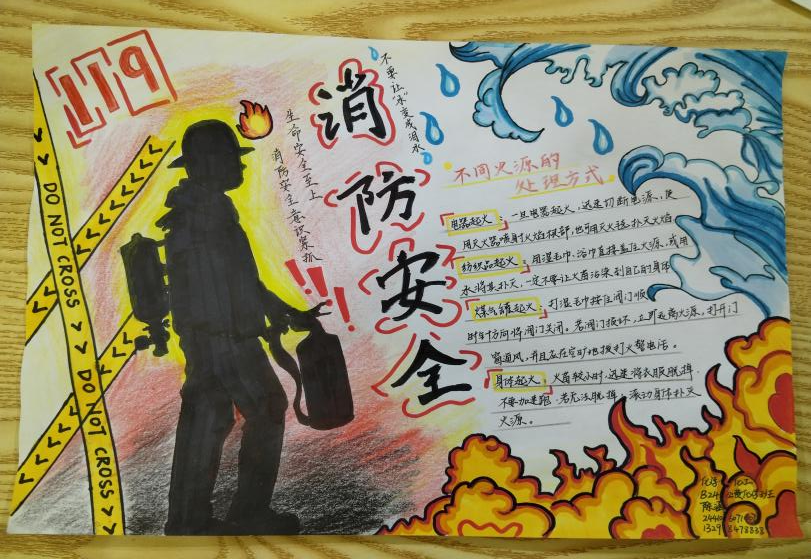 119
DO NOT CROSS
DO NOT CROSS
消防安全
不要让"水"变成泪水
生命安全至上
消防安全意识紧抓
!!!
不同火源的
处理方式
电器起火：一旦电器起火，迅速切断电源，使
用灭火器喷射火焰根部，也可用灭火毯扑灭火焰
纺织品起火：用湿毛巾、浴巾直接盖住火源，或用
水将其扑灭，一定不要让火苗沾染到自己的身体
煤气罐起火：打湿毛巾按住阀门顺
时针方向将阀门关闭。若阀门损坏，立即远离火源，打开门
窗通风，并且应在空旷地拨打火警电话。
身体起火：火苗较小时，迅速将衣服脱掉，
不要加速跑，若无法脱掉，滚动身体扑灭
火源。